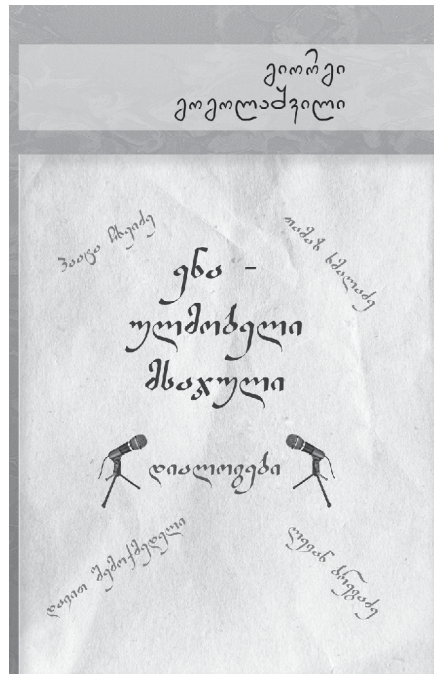 გიორგი
გოგოლაშვილი
პაატა ჩხეიძე
თამაზ ხმალაძე
ენა –
ულმობელი
მსაჯული
დიალოგები
დავით შემოქმედელი
ლევან ბრეგაძე